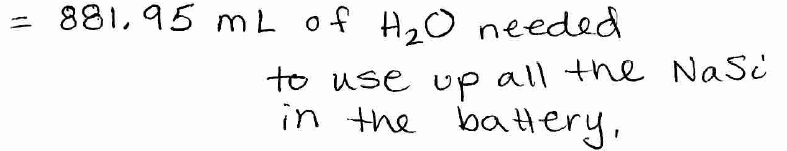 = 881.95 mL of H₂O needed
to use up all the NaSi
in the battery.